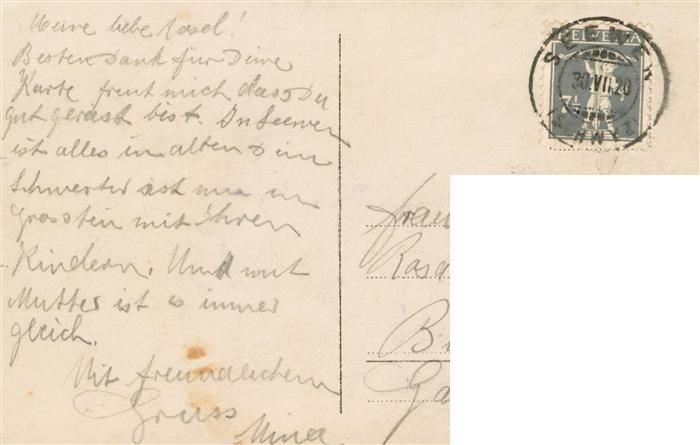 Meine liebe Rosel!
Besten Dank für Deine
Karte freut mich dass Du
gut gerast bist. In Seewen
ist alles im alten & im
Schwerter ist nur im
Grosstein mit ihren
Kindern. Und mit
Mutter ist es immer
gleich.
Mit freundlichem
Gruss
HELVETIA
SEEWEN
30.VII.20
7½
(SCHWYZ)
Frau
Rosa